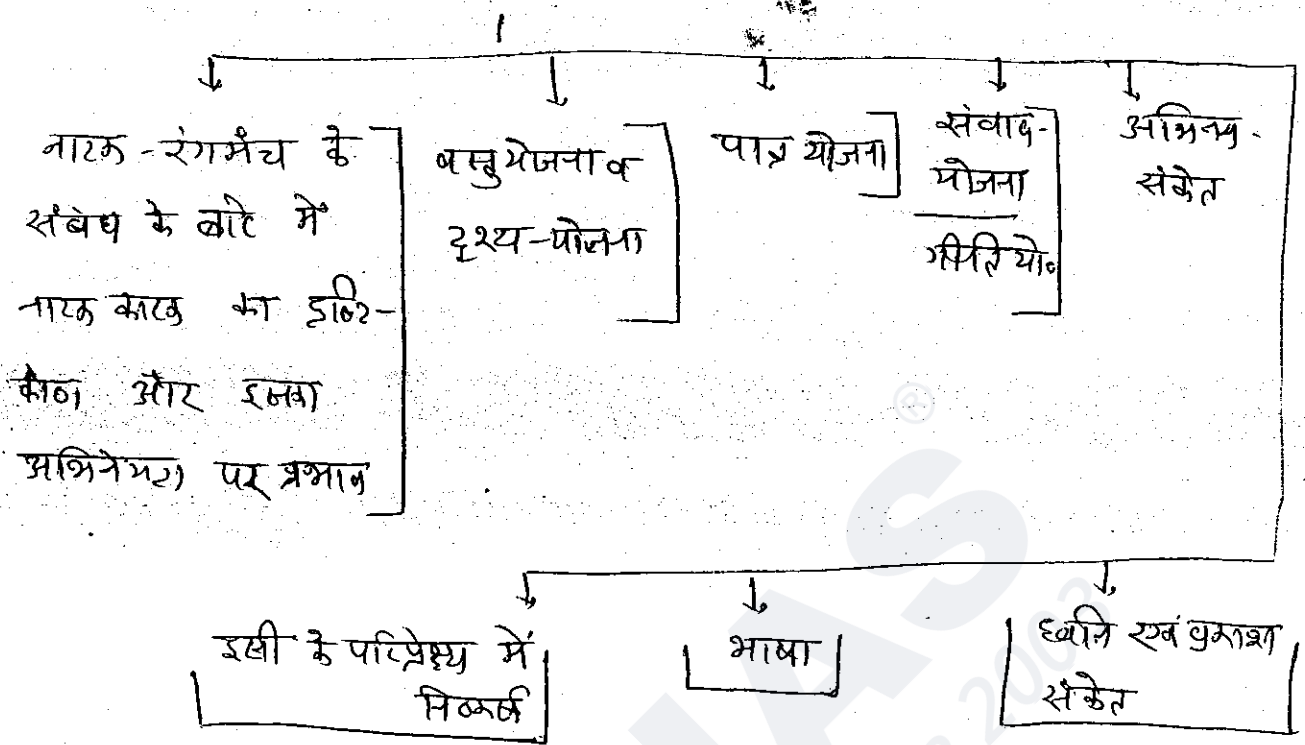 नाटक-रंगमंच के
संबंध के बारे में
नाटक कारक का दृष्टि-
कोण और इसका
अभिनेयता पर प्रभाव
वस्तु योजना व
दृश्य-योजना
पात्र योजना
संवाद-
योजना
गीति यो॰
अभिनय-
संकेत
इसी के परिप्रेक्ष्य में
निष्कर्ष
भाषा
ध्वनि एवं प्रकाश
संकेत